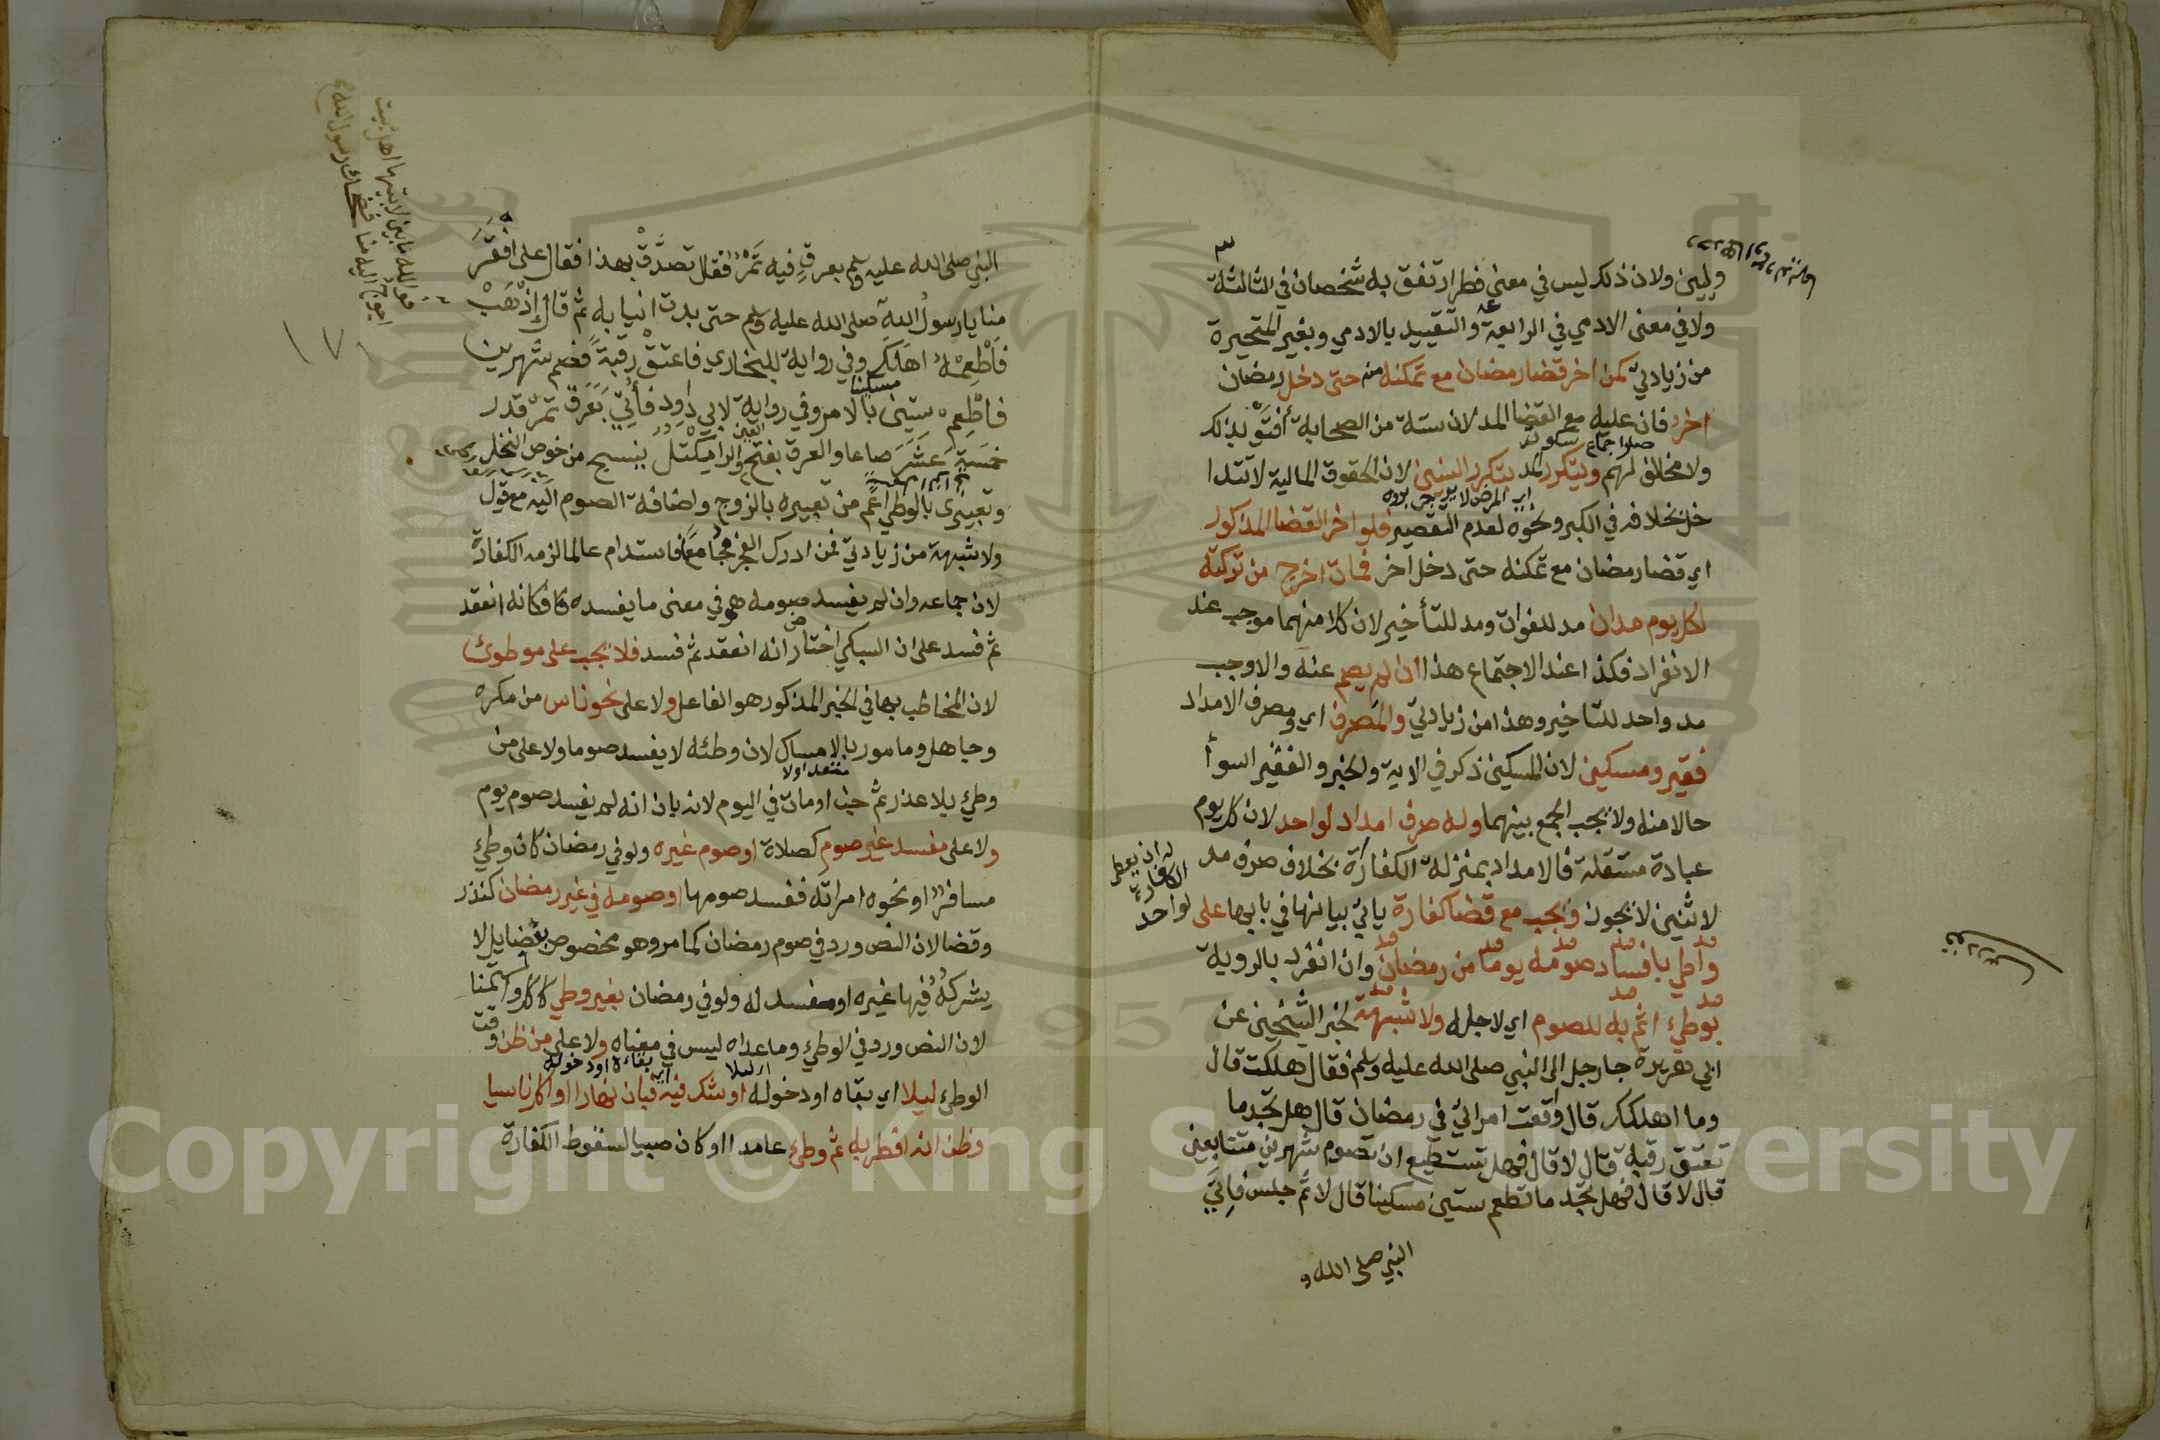 ولين ولان ذلك ليس في معنى فطر ارتفق به شخصان في الثالثة
ولا في معنى الادمي في الرابعة والتقييد بالادمي وبغير المتحيرة
من زيادتي كمن اخر قضا رمضان مع تمكنه منه حتى دخل رمضان
اخر فان عليه مع القضا المد لان ستة من الصحابة أفتوا بذلك
ولا مخالف لهم ويتكرر المد بتكرر السنين لان الحقوق المالية لا تتدا
خل بخلافه في الكبر ونحوه لعدم التقصير فلو اخر القضا المذكور
اي قضا رمضان مع تمكنه حتى دخل اخر فمات اخرج من تركته
لكل يوم مدان مد للفوات ومد للتأخير لان كلا منهما موجب عند
الانفراد فكذا عند الاجتماع هذا ان لم يصم عنه والا وجب
مد واحد للتاخير وهذا من زيادتي والمصرف اي ومصرف الامداد
فقير ومسكين لان المسكين ذكر في الاية والخبر والفقير اسوأ
حالا منه ولا يجب الجمع بينهما وله صرف امداد لواحد لان كل يوم
عبادة مستقلة فالامداد بمنزلة الكفارة بخلاف صرف مد
لاثنين لا يجوز ويجب مع قضا كفارة ياتي بيانها في بابها على
واطي بافساد صومه يوما من رمضان وان انفرد بالروية
بوطئ اثم به للصوم اي لاجله ولا شبهة لخبر الشيخين عن
ابي هريرة جا رجل الى النبي صلى الله عليه وسلم فقال هلكت قال
وما اهلكك قال واقعت امراتي في رمضان قال هل تجد ما
تعتق رقبة قال لا قال فهل تستطيع ان تصوم شهرين متتابعين
قال لا قال فهل تجد ما تطعم ستين مسكينا قال لا ثم جلس فاتي
النبي صلى الله
النبي صلى الله عليه وسلم بعرق فيه تمر فقال تصدق بهذا فقال على افقر
منا يا رسول الله صلى الله عليه وسلم حتى بدت انيابه ثم قال إذهب
فأطعمه اهلك وفي رواية للبخاري فاعتق رقبة فصم شهرين
فاطعم ستين مسكينا بالامر وفي رواية لابي داود فأتي بعرق تمر قدر
خمسة عشر صاعا والعرق بفتح العين والرا مكتل ينسج من خوص النخل
وتعبيري بالوطي اعم من تعبيره بالزوج واضافة الصوم اليه مع قول
ولا شبهة من زيادتي فمن ادرك الفجر مجامعا فاستدام عالما لزمه الكفارة
لان جماعه وان لم يفسد صومه هو في معنى ما يفسده فكانه انعقد
ثم فسد على ان السبكي اختار انه انعقد ثم فسد فلا يجب على موطوئ
لان المخاطب بها في الخبر المذكور هو الفاعل ولا على نحو ناس من مكره
وجاهل ومامور بالامساك لان وطئه لا يفسد صوما ولا على من
وطئ بلا عذر ثم جن او مات في اليوم لانه بان انه لم يفسد صوم يوم
ولا على مفسد غير صوم كصلاة او صوم غيره ولو في رمضان كان وطئ
مسافر او نحوه امراته ففسد صومها او صومه في غير رمضان كنذر
وقضا لان النص ورد في صوم رمضان كما مر وهو مخصوص بفضايل لا
يشركه فيها غيره او مفسد له ولو في رمضان بغير وطي كاكل واستمنا
لان النص ورد في الوطئ وما عداه ليس في معناه ولا على من ظن وقت
الوطئ ليلا اي بقاه او دخوله او شك فيه فبان نهارا او اكل ناسيا
وظن انه افطر به ثم وطئ عامدا او كان صبيا لسقوط الكفارة
فوالله ما بين لابتيها اهل بيت
احوج اليه منا فضحك رسول الله
١٧
Copyright © King Saud University
1957